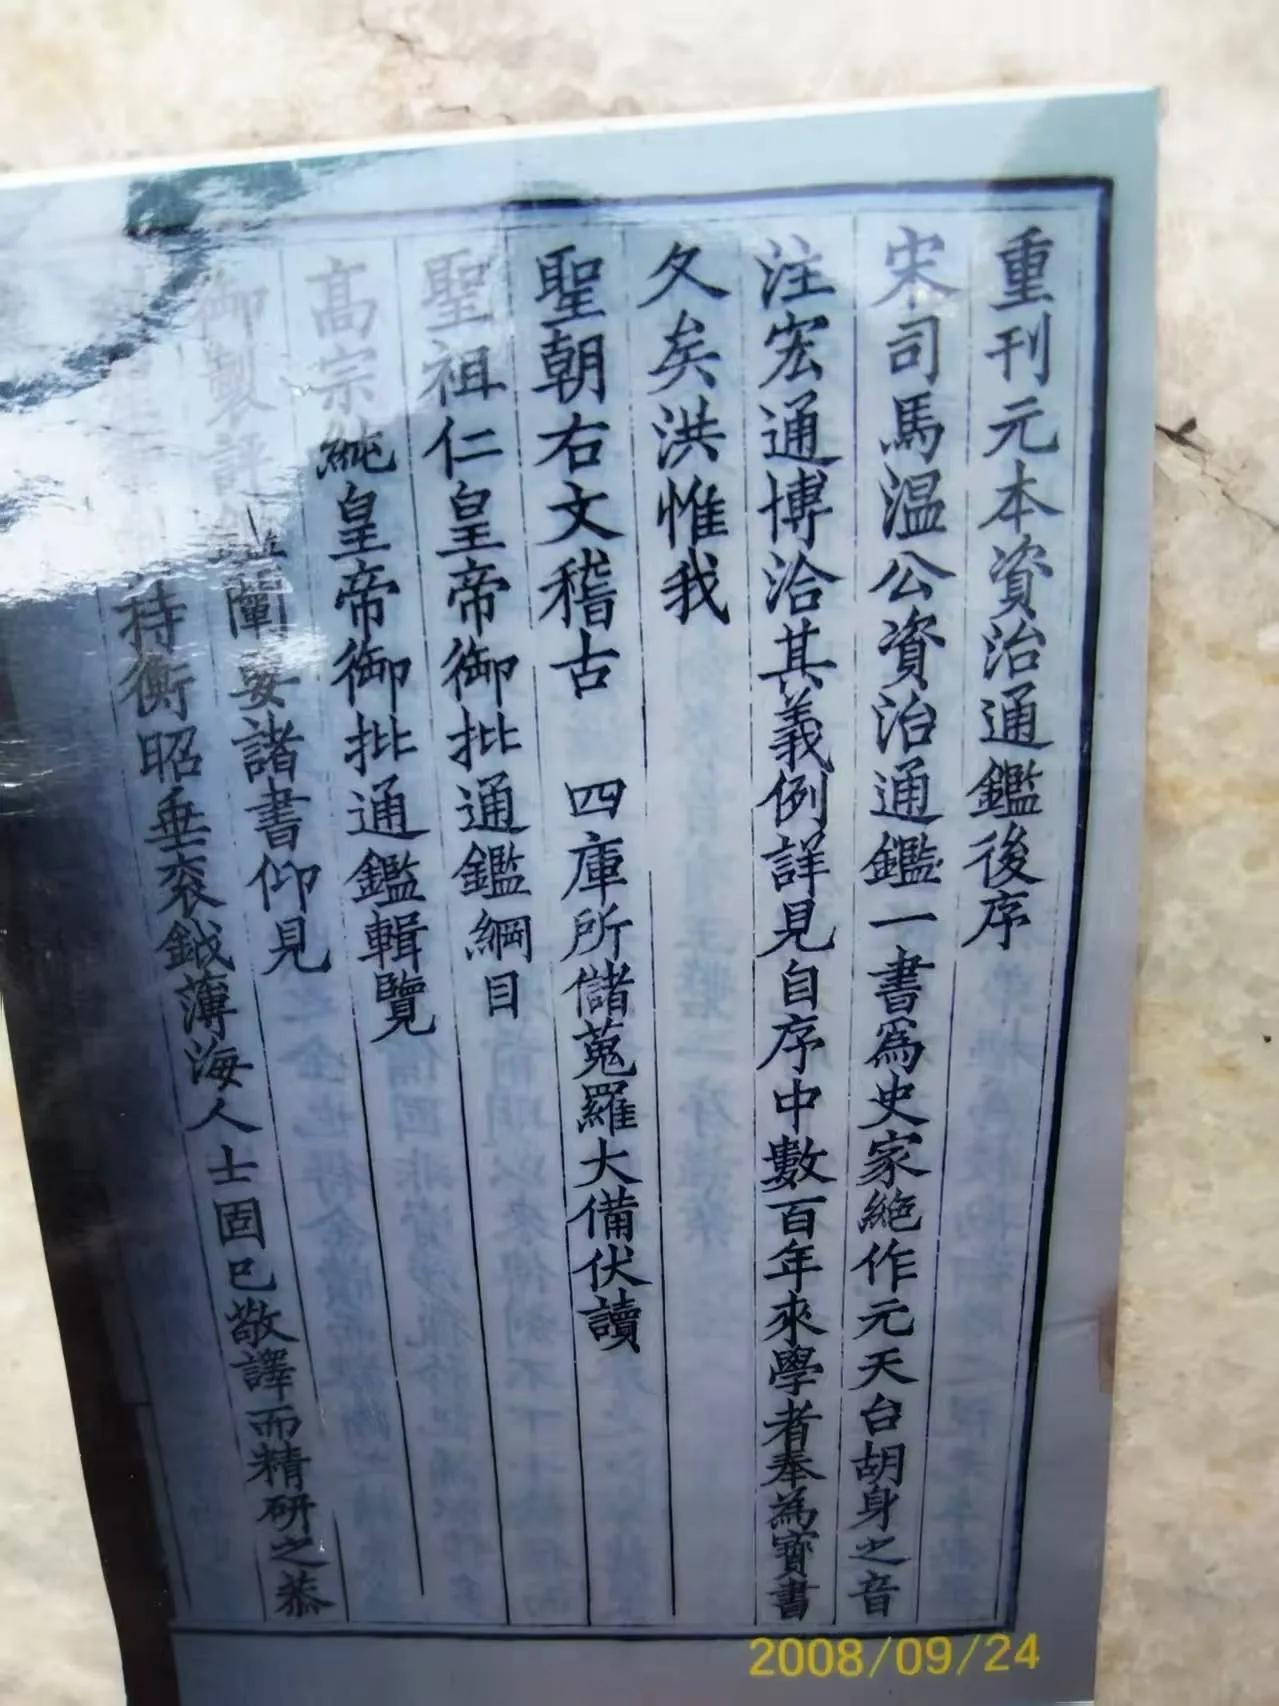 重刊元本資治通鑑後序
宋司馬溫公資治通鑑一書爲史家絶作元天台胡身之音
注宏通博洽其義例詳見自序中數百年來學者奉為寶書
久矣洪惟我
聖朝右文稽古 四庫所儲蒐羅大備伏讀
聖祖仁皇帝御批通鑑綱目
高宗純皇帝御批通鑑輯覽
御製評鑑闡要諸書仰見
持衡昭垂袞鉞薄海人士固已敬譯而精研之恭
2008/09/24